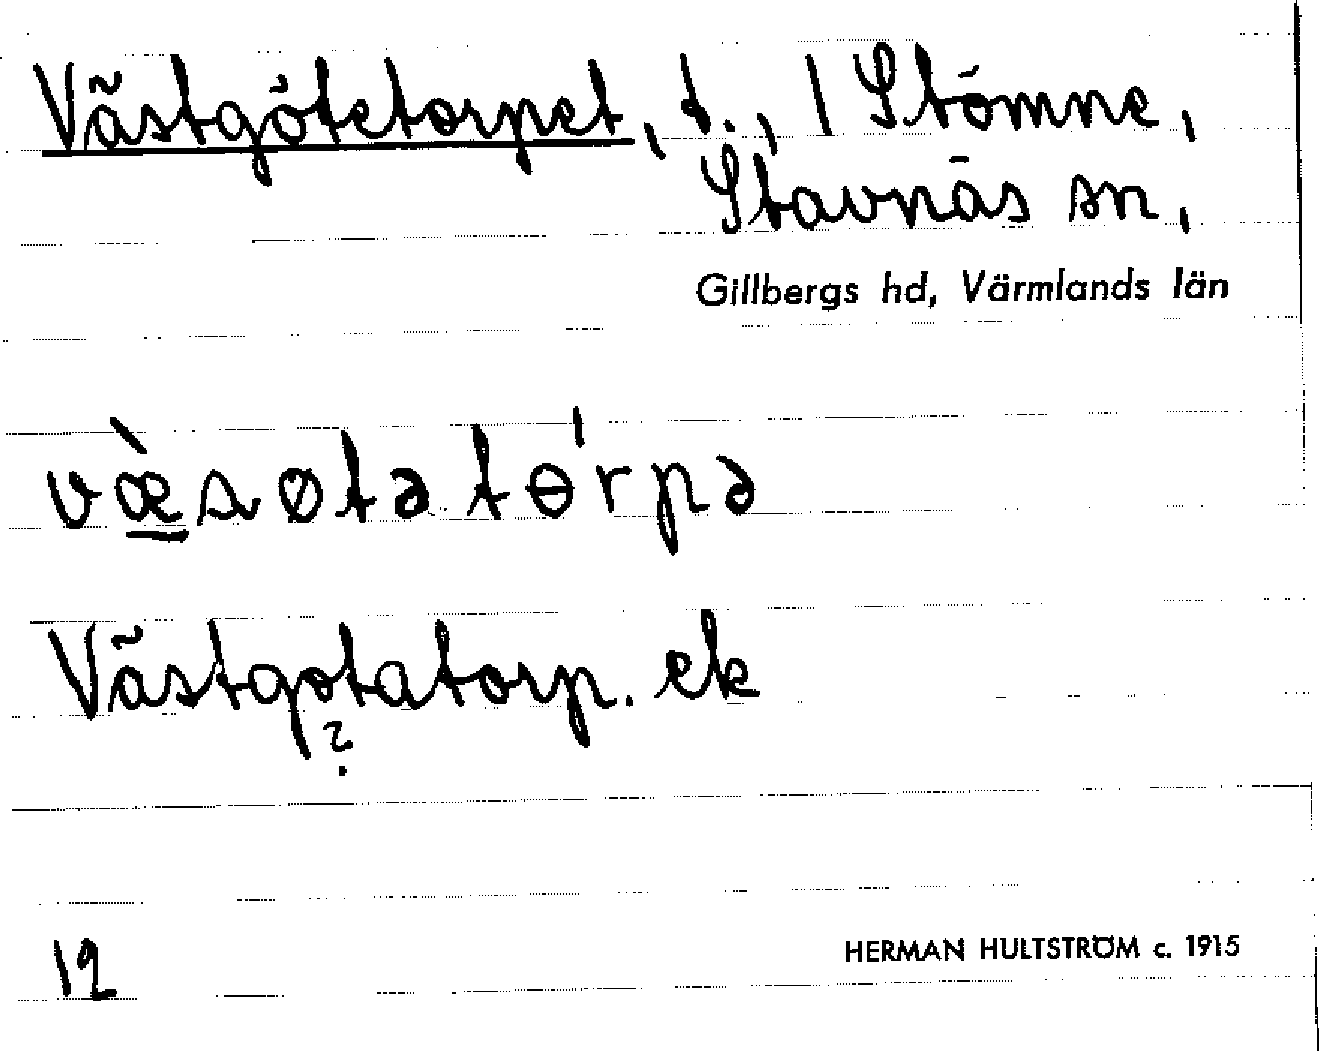 Västgötetorpet, t., 1 Stömne,
Stavnäs sn,
Gillbergs hd, Värmlands län
væ̠̀søtatɵ́rpə
Västgotatorp. ek
?
12
HERMAN HULTSTRÖM c. 1915